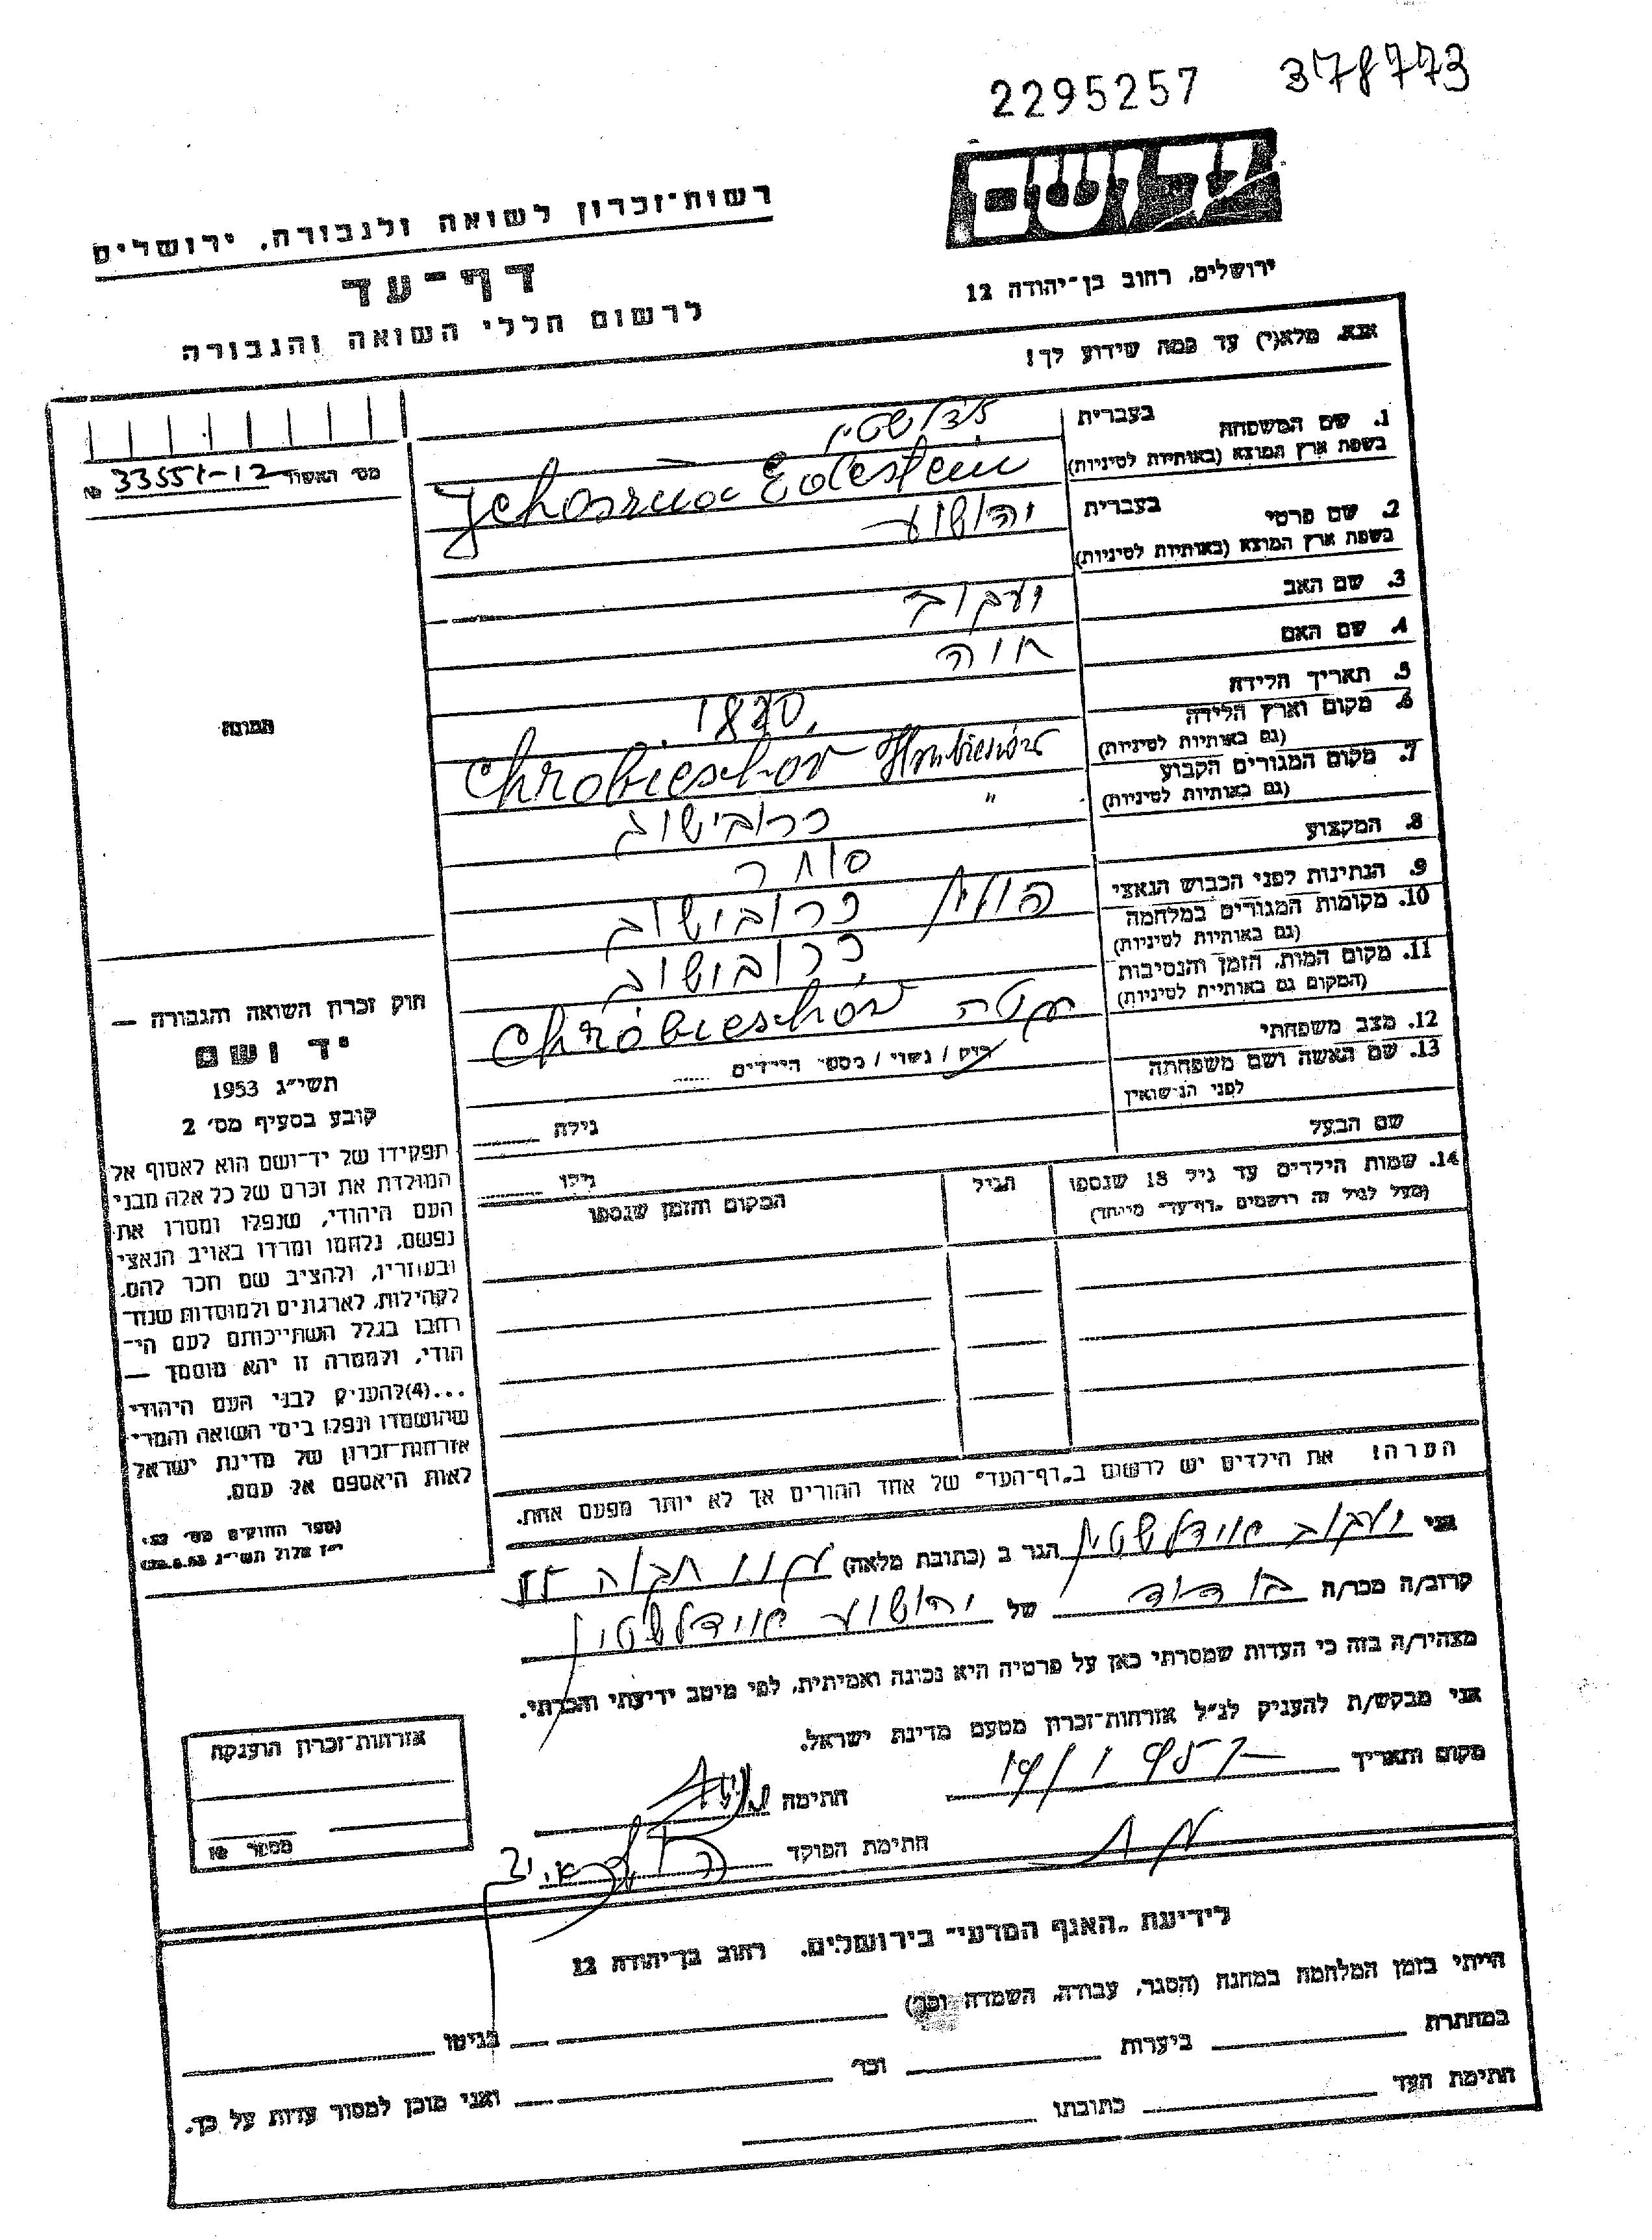 2295257 378773
ידושם
רשות־זכרון לשואה ולגבורה, ירושלים
ירושלים, רחוב בן־יהודה 12
דף־עד
לרשום חללי השואה והגבורה
אנא, מלא(י) עד כמה שידוע לך!
1. שם המשפחה בעברית
בשפת ארץ המוצא (באותיות לטיניות) Jehoszua Edestein
מס׳ האשור 33551-12 №
2. שם פרטי בעברית יהושע
בשפת ארץ המוצא (באותיות לטיניות)
3. שם האב יעקוב
4. שם האם חוה
5. תאריך הלידה 1870
6. מקום וארץ הלידה Chrobieschov
(גם באותיות לטיניות)
7. מקום המגורים הקבוע " כרובישוב
(גם באותיות לטיניות)
8. המקצוע סוחר
9. הנתינות לפני הכבוש הנאצי כרובישוב
10. מקומות המגורים במלחמה כרובישוב
(גם באותיות לטיניות)
11. מקום המות, הזמן והנסיבות Chróbieschov
(המקום גם באותיות לטיניות)
12. מצב משפחתי רוק / נשוי / מספר הילדים
13. שם האשה ושם משפחתה
לפני הנישואין גילה
שם הבעל גילו
14. שמות הילדים עד גיל 18 שנספו הגיל המקום והזמן שנספו
(מעל לגיל זה רושמים „דף־עד” מיוחד)
התמונה
חוק זכרון השואה והגבורה —
יד ושם
תשי״ג 1953
קובע בסעיף מס׳ 2
תפקידו של יד־ושם הוא לאסוף אל
המולדת את זכרם של כל אלה מבני
העם היהודי, שנפלו ומסרו את
נפשם, נלחמו ומרדו באויב הנאצי
ובעוזריו, ולהציב שם וזכר להם,
לקהילות, לארגונים ולמוסדות שנח־
רבו בגלל השתייכותם לעם הי־
הודי, ולמטרה זו יהא מוסמך —
...(4)להעניק לבני העם היהודי
שהושמדו ונפלו בימי השואה והמרי
אזרחות־זכרון של מדינת ישראל
לאות היאספם אל עמם.
(ספר החוקים מס׳ 132
י״ז אלול תשי״ג 28.8.53)
הערה! את הילדים יש לרשום ב„דף־העד” של אחד ההורים אך לא יותר מפעם אחת.
אני יעקוב אידלשטין הגר ב (כתובת מלאה)
קרוב/ה מכר/ה בן דוד של יהושע אידלשטין
מצהיר/ה בזה כי העדות שמסרתי כאן על פרטיה היא נכונה ואמיתית, לפי מיטב ידיעתי והכרתי.
אני מבקש/ת להעניק לנ״ל אזרחות־זכרון מטעם מדינת ישראל.
מקום ותאריך 19/1 957 חתימה
חתימת הפוקד
אזרחות־זכרון הוענקה
מספר №
לידיעת „האגף המדעי” בירושלים, רחוב בן־יהודה 12
הייתי בזמן המלחמה במחנה (הסגר, עבודה, השמדה וכו׳) בגיטו
במחתרת ביערות וכו׳ ואני מוכן למסור עדות על כך.
חתימת העד כתובתו